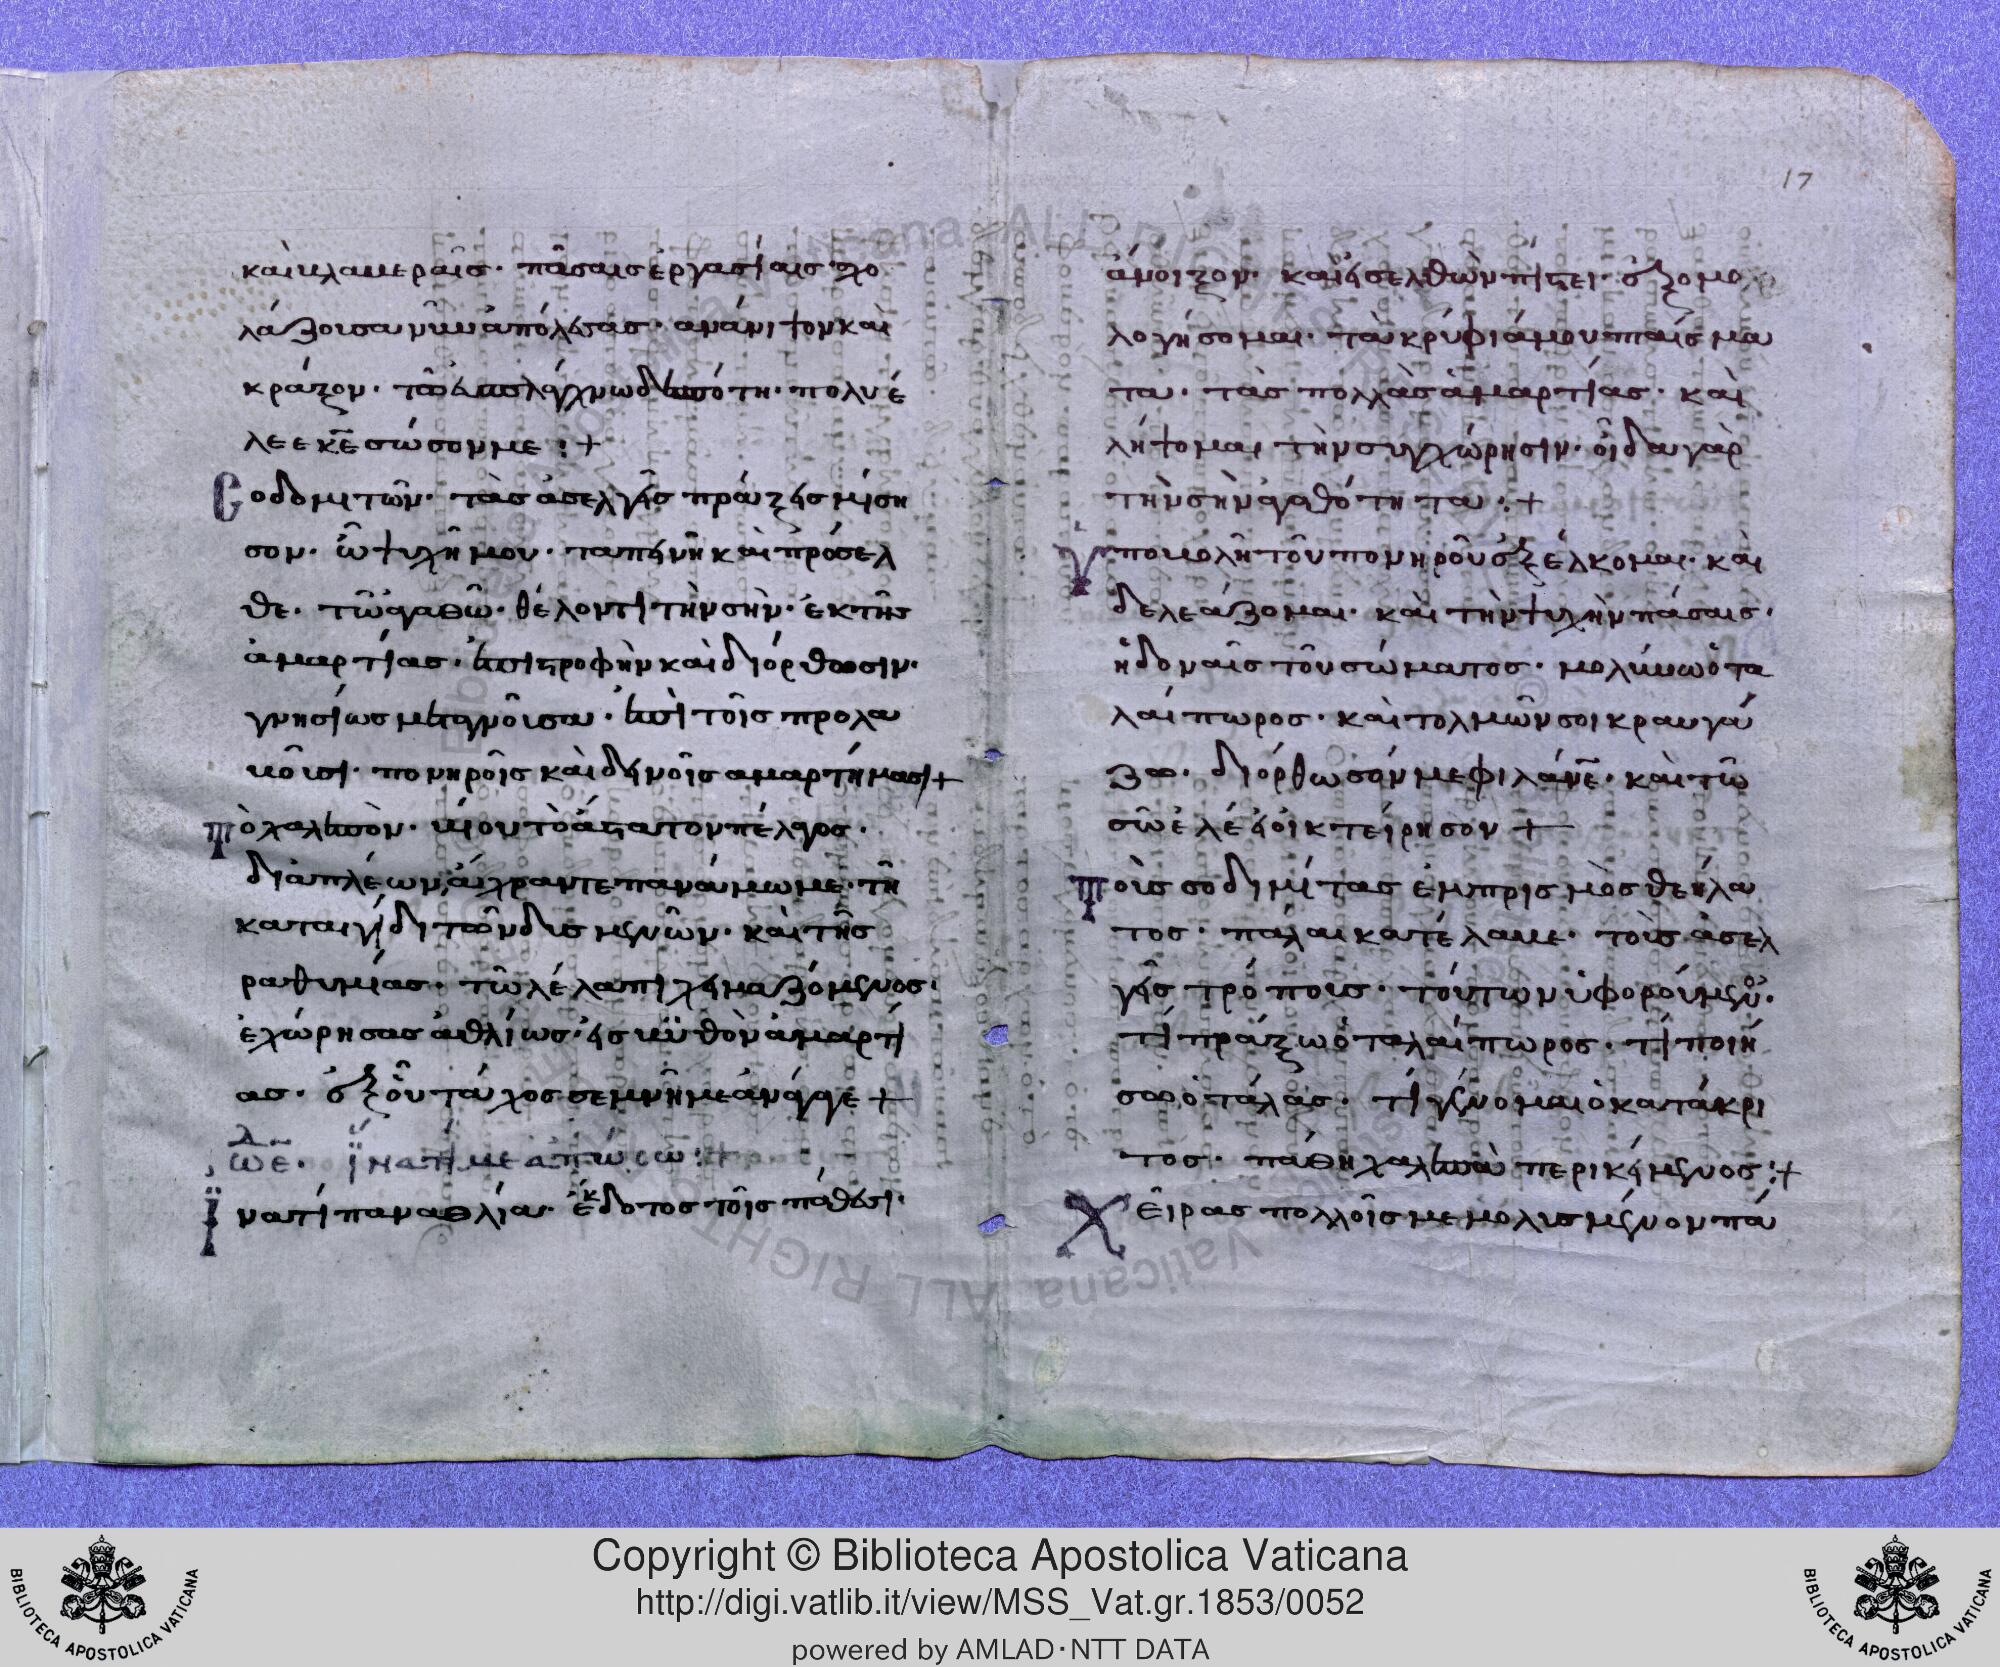 καὶ βλαβεραῖς· πᾶσαις ἐργασίαις σχο
λάζουσα νῦν ἀπόλεσας· ἀνάνιψον καὶ
κράξον· τῶ εὐσπλάγχνω δεσπότη· πολυέ
λεε κε σῶσον με :+
Σοδομιτῶν· τὰς ἀσελγεῖς πράξεις μίση
σον· ὦ ψυχῆ μου· ταπεινὴ καὶ πρόσελ
θε· τῶ ἀγαθῶ· θέλοντι τὴν σὴν· ἐκ τῆς
ἁμαρτίας· ἐπιστροφὴν καὶ διόρθωσιν·
γνησίως μεταγνοῦσα· ἐπὶ τοῖς προλα
βοῦσι· πονηροῖς καὶ δεινοῖς αμαρτήμασι+
Τὸ χαλεπὸν· βίου τὸ ἄστατον πέλαγος·
διαπλέων, ἄχραντε πανάμωμε· τῆ
καταιγίδι τῶν δυσμενῶν· καὶ τῆς
ραθυμίας· τῶ λέλαπι χειμαζόμενος·
ἐχώρησας ἀθλίως· εἰς βυθὸν ἁμαρτί
ας· ἐξ οὗ τάχος σεμνὴ με ἀνάγαγε +
ὠδ ε· ἵνα τί με ἀπώσω :+
Ἵνα τί παναθλία· ἔκδοτος τοῖς πάθεσι·
17
ἄνοιξον· καὶ εἰσελθὼν πίστει· ἐξομο
λογήσομαι· τὰ κρύφιά μου πταίσμα
τα· τὰς πολλὰς ἁμαρτίας· καὶ
λήψομαι τὴν συγχώρησιν· οἶδα γὰρ
τὴν σὴν ἀγαθότητα :+
Ὑποβολῆ τοῦ πονηροῦ ἐξέλκομαι· καὶ
δελεάζομαι· καὶ τὴν ψυχὴν πάσαις·
ἡδοναῖς τοῦ σώματος· μολύνω ὁ τα
λαίπωρος· καὶ τολμῶν σοι κραυγά
ζω· διόρθωσόν με φιλάνε· καὶ τῶ
σῶ ἐλέει οἰκτείρησον +
Τοὺς σοδιμίτας ἐμπρισμὸς θεήλα
τος· πάλαι κατέλαβε· τοὺς ἀσελ
γεῖς τρόποις· τούτων ὑφορούμενου·
τί πράξω ὁ ταλαίπωρος· τί ποιή
σω ὁ τάλας· τί γένομαι ὁ κατάκρι
τος· πάθη χαλεπὰ περικείμενος :+
Χεῖρας πολλοῖς με μολυσμένον πά
Copyright © Biblioteca Apostolica Vaticana
http://digi.vatlib.it/view/MSS_Vat.gr.1853/0052
powered by AMLAD·NTT DATA
BIBLIOTECA APOSTOLICA VATICANA
BIBLIOTECA APOSTOLICA VATICANA